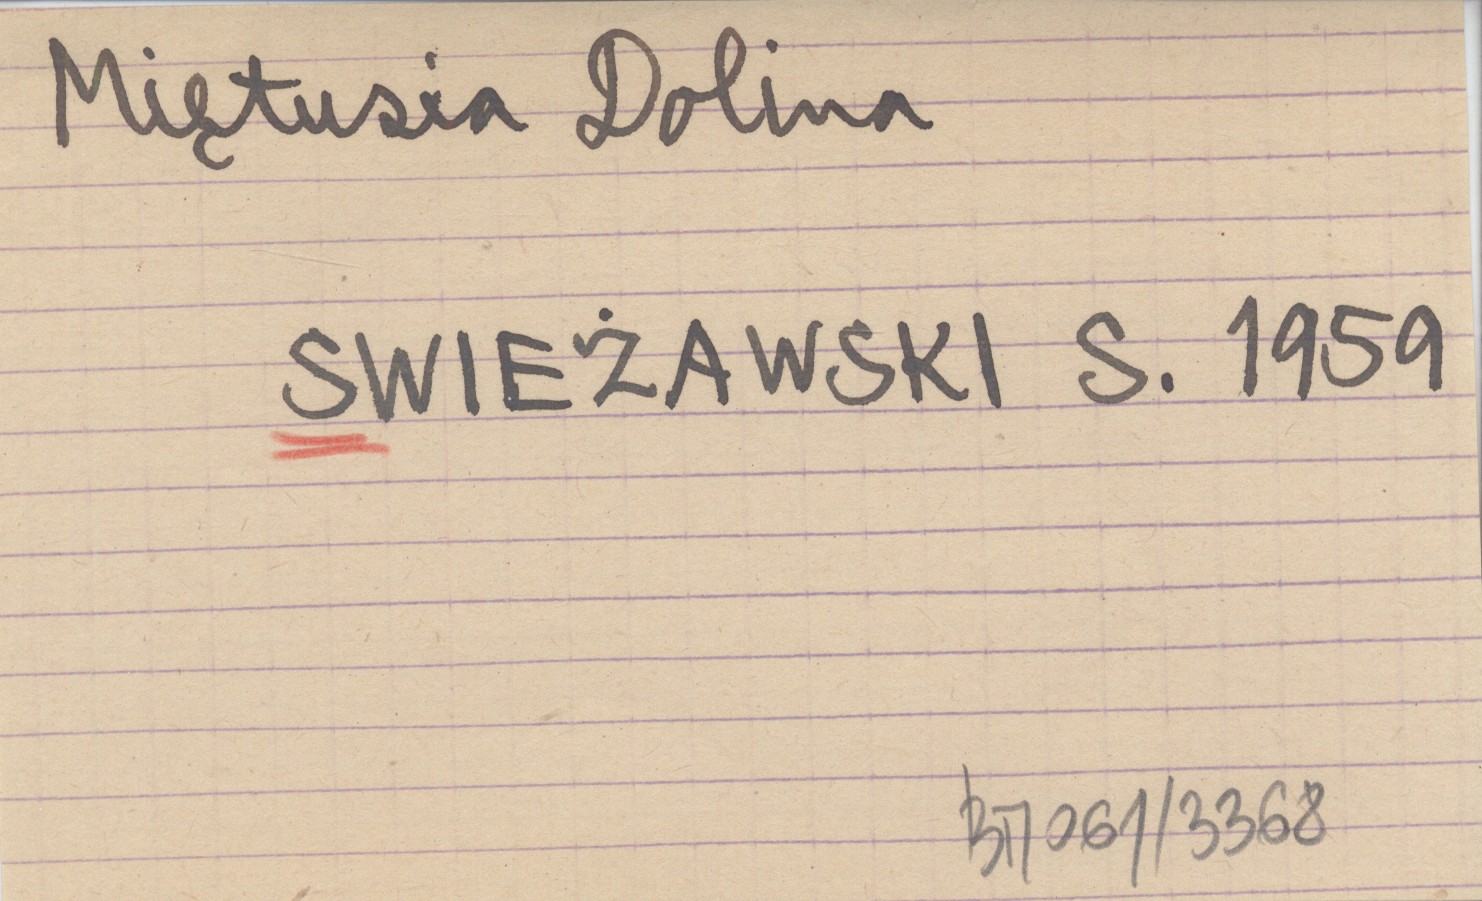 Miętusia Dolina
SWIEŻAWSKI S. 1959
061/3368